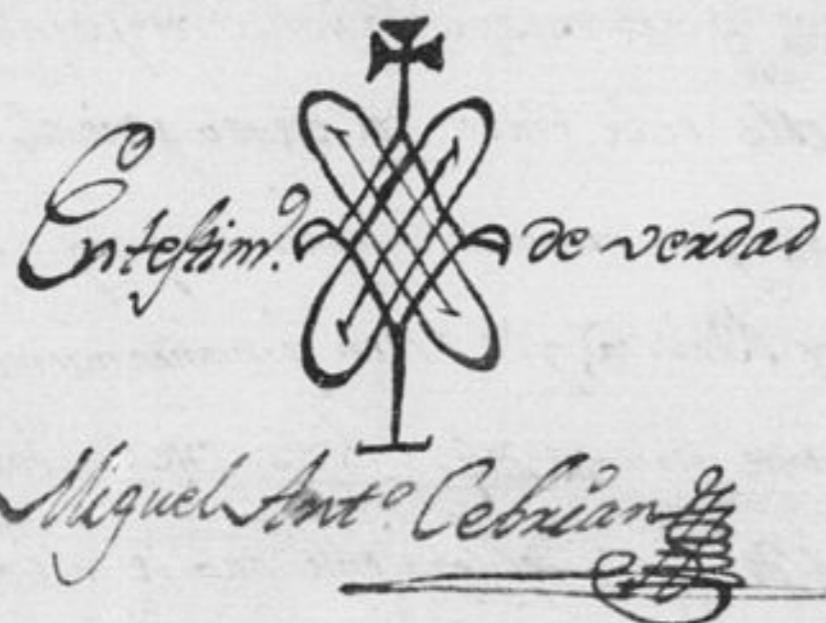 En testim.º de verdad
Miguel Ant.º Cebrian